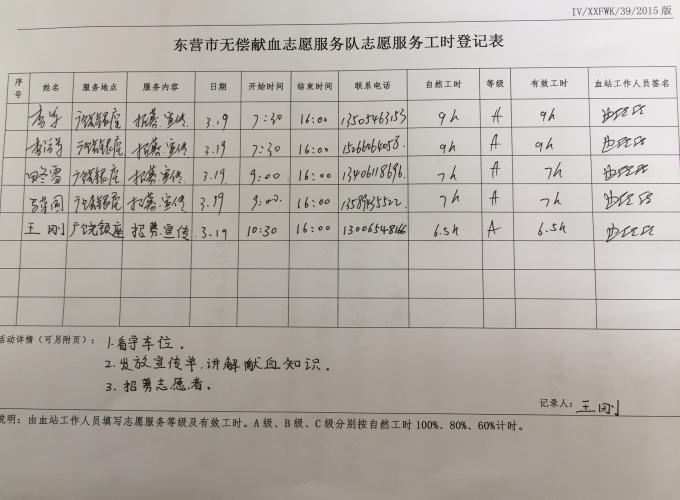 IV/XXFWK/39/2015 版
东营市无偿献血志愿服务队志愿服务工时登记表
序号 姓名 服务地点 服务内容 日期 开始时间 结束时间 联系电话 自然工时 等级 有效工时 血站工作人员签名
银座 招募.宣传 3.19 7:30 16:00 13505463153 9h A 9h
银座 招募.宣传 3.19 7:30 16:00 9h A 9h
银座 招募.宣传 3.19 9:00 16:00 13406118696 7h A 7h
银座 招募.宣传 3.19 9:00 16:00 7h A 7h
王刚 银座 招募.宣传 3.19 10:30 16:00 13006548166 6.5h A 6.5h
活动详情(可另附页): 1.看守车位.
2.发放宣传单.讲解献血知识.
3.招募志愿者.
记录人: 王刚
说明: 由血站工作人员填写志愿服务等级及有效工时。A级、B级、C级分别按自然工时 100%、80%、60%计时。